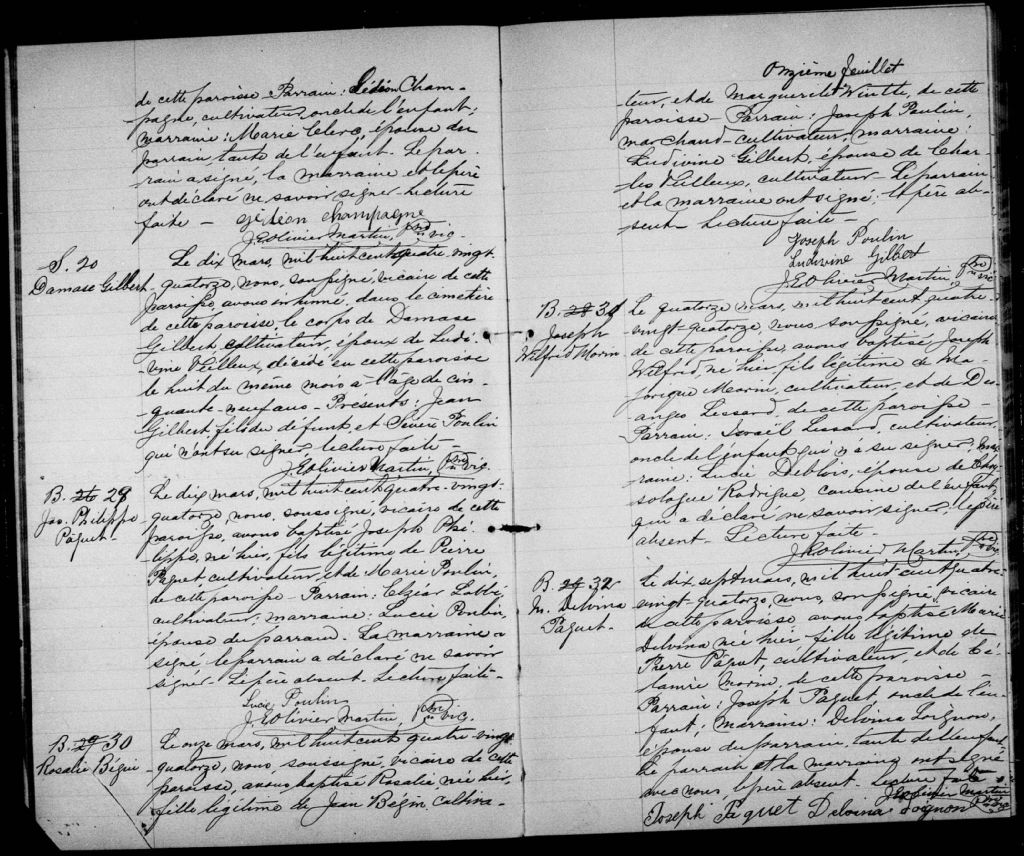 de cette paroisse Parrain: Gédéon Cham-
pagne, cultivateur, oncle de l'enfant,
marraine: Marie Clerc, épouse du
parrain tante de l'enfant - Le par-
rain a signé, la marraine et le père
ont déclaré ne savoir signer - Lecture
faite - Gédéon Champagne
J.E. Olivier Martin, Ptre Vic.
S. 20
Damase Gilbert
Le dix mars, mil huit cent quatre-vingt-
quatorze, nous, soussigné, vicaire de cette
paroisse, avons inhumé, dans le cimetière
de cette paroisse, le corps de Damase
Gilbert cultivateur, époux de Ludi-
vine Veilleux, décédé en cette paroisse
le huit du même mois à l'âge de cin-
quante-neuf ans - Présents: Jean
Gilbert fils de défunt, et Poulin
qui n'ont su signer, lecture faite -
J.E. Olivier Martin, Ptre Vic.
B. 28
Jos. Philippe
Paquet
Le dix mars, mil huit cent quatre-vingt-
quatorze, nous, soussigné, vicaire de cette
paroisse, avons baptisé Joseph Phi-
lippe, né hier, fils légitime de Pierre
Paquet, cultivateur, et de Marie Poulin,
de cette paroisse - Parrain: Elzéar
cultivateur, marraine: Lucie Poulin,
épouse du parrain. La marraine a
signé le parrain a déclaré ne savoir
signer - Le père absent. Lecture faite -
Lucie Poulin
J.E. Olivier Martin, Ptre Vic.
B. 29 30
Rosalie Bégin
Le onze mars, mil huit cent quatre-vingt-
quatorze, nous, soussigné, vicaire de cette
paroisse, avons baptisé Rosalie, née hier
fille légitime de Jean Bégin, cultiva-
Onzième feuillet
teur, et de Marguerite, de cette
paroisse - Parrain: Joseph Poulin,
marchand-cultivateur, marraine:
Ludivine Gilbert, épouse de Char-
les Veilleux, cultivateur - Le parrain
et la marraine ont signé: le père ab-
sent - Lecture faite -
Joseph Poulin
Ludivine Gilbert
J.E. Olivier Martin, Ptre Vic
B. 31
Joseph
Wilfrid Morin
Le quatorze mars, mil huit cent quatre-
vingt-quatorze, nous soussigné, vicaire
de cette paroisse, avons baptisé Joseph
Wilfrid, né hier, fils légitime de Ma-
jorique Morin, cultivateur, et de
Lessard, de cette paroisse -
Parrain: Israël Lessard, cultivateur,
oncle de l'enfant qui n'a su signer, mar-
raine: Lucie Deblois, épouse de Chry-
sologue Rodrigue, cousine de l'enfant,
qui a déclaré ne savoir signer, le père
absent - Lecture faite -
J.E. Olivier Martin, Ptre Vic
B. 32
M. Delvina
Paquet
Le dix sept mars, mil huit cent quatre-
vingt-quatorze, nous, soussigné, vicaire
de cette paroisse avons baptisé Marie
Delvina née hier, fille légitime de
Pierre Paquet, cultivateur, et de Cé-
Morin, de cette paroisse -
Parrain: Joseph Paquet oncle de l'en-
fant, Marraine: Delvina Loignon,
épouse du parrain, tante de l'enfant.
Le parrain et la marraine ont signé
avec nous, le père absent - Lecture faite
J.E. Olivier Martin
Joseph Paquet Delvina Loignon Ptre Vic